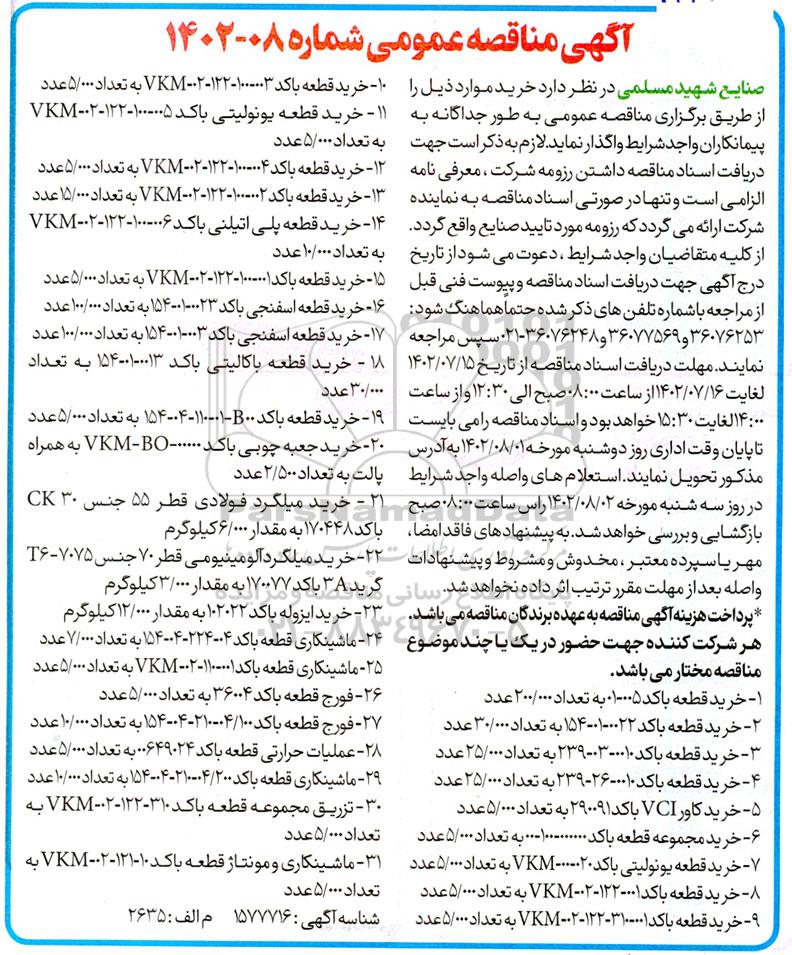 آگهی مناقصه عمومی شماره ۰۸-۱۴۰۲
صنایع شهید مسلمی در نظر دارد خرید موارد ذیل را
از طریق برگزاری مناقصه عمومی به طور جداگانه به
پیمانکاران واجد شرایط واگذار نماید. لازم به ذکر است جهت
دریافت اسناد مناقصه داشتن رزومه شرکت ، معرفی نامه
الزامی است و تنها در صورتی اسناد مناقصه به نماینده
شرکت ارائه می گردد که رزومه مورد تایید صنایع واقع گردد.
از کلیه متقاضیان واجد شرایط ، دعوت می شود از تاریخ
درج آگهی جهت دریافت اسناد مناقصه و پیوست فنی قبل
از مراجعه با شماره تلفن های ذکر شده حتماً هماهنگ شود:
۳۶۰۷۶۲۵۳ و ۳۶۰۷۷۵۶۹ و ۳۶۰۷۶۲۴۸-۰۲۱ سپس مراجعه
نمایند. مهلت دریافت اسناد مناقصه از تاریخ ۱۴۰۲/۰۷/۱۵
لغایت ۱۴۰۲/۰۷/۱۶ از ساعت ۰۸:۰۰ صبح الی ۱۲:۳۰ و از ساعت
۱۴:۰۰ لغایت ۱۵:۳۰ خواهد بود و اسناد مناقصه را می بایست
تا پایان وقت اداری روز دوشنبه مورخه ۱۴۰۲/۰۸/۰۱ به آدرس
مذکور تحویل نمایند. استعلام های واصله واجد شرایط
در روز سه شنبه مورخه ۱۴۰۲/۰۸/۰۲ راس ساعت ۰۸:۰۰ صبح
بازگشایی و بررسی خواهد شد. به پیشنهادهای فاقد امضا،
مهر یا سپرده معتبر ، مخدوش و مشروط و پیشنهادات
واصله بعد از مهلت مقرر ترتیب اثر داده نخواهد شد.
*پرداخت هزینه آگهی مناقصه به عهده برندگان مناقصه می باشد.
هر شرکت کننده جهت حضور در یک یا چند موضوع
مناقصه مختار می باشد.
۱- خرید قطعه باکد ۰۰۵-۰۱ به تعداد ۲۰۰/۰۰۰ عدد
۲- خرید قطعه باکد ۰۰۲۲-۰۱-۱۵۴ به تعداد ۳۰/۰۰۰ عدد
۳- خرید قطعه باکد ۰۰۱۰-۰۳-۲۳۹ به تعداد ۲۵/۰۰۰ عدد
۴- خرید قطعه باکد ۰۰۱۰-۲۶-۲۳۹ به تعداد ۲۵/۰۰۰ عدد
۵- خرید کاور VCI باکد ۲۹۰۰۹۱ به تعداد ۵/۰۰۰ عدد
۶- خرید مجموعه قطعه باکد به تعداد ۵/۰۰۰ عدد
۷- خرید قطعه یونولیتی باکد به تعداد ۵/۰۰۰ عدد
۸- خرید قطعه باکد VKM-۰۲-۱۲۲-۰۰۱ به تعداد ۵/۰۰۰ عدد
۹- خرید قطعه باکد VKM-۰۲-۱۲۲-۳۱۰-۰۰۱ به تعداد ۵/۰۰۰ عدد
۱۰- خرید قطعه باکد VKM-۰۲-۱۲۲-۱۰۰-۰۰۳ به تعداد ۵/۰۰۰ عدد
۱۱- خرید قطعه یونولیتی باکد VKM-۰۲-۱۲۲-۱۰۰-۰۰۵
به تعداد ۵/۰۰۰ عدد
۱۲- خرید قطعه باکد VKM-۰۲-۱۲۲-۱۰۰-۰۰۴ به تعداد ۵/۰۰۰ عدد
۱۳- خرید قطعه باکد VKM-۰۲-۱۲۲-۱۰۰-۰۰۲ به تعداد ۱۵/۰۰۰ عدد
۱۴- خرید قطعه پلی اتیلنی باکد VKM-۰۲-۱۲۲-۱۰۰-۰۰۶
به تعداد ۱۰/۰۰۰ عدد
۱۵- خرید قطعه باکد VKM-۰۲-۱۲۲-۱۰۰-۰۰۱ به تعداد ۵/۰۰۰ عدد
۱۶- خرید قطعه اسفنجی باکد ۰۰۲۳-۰۱-۱۵۴ به تعداد ۱۰۰/۰۰۰ عدد
۱۷- خرید قطعه اسفنجی باکد ۰۰۳-۰۱-۱۵۴ به تعداد ۱۰۰/۰۰۰ عدد
۱۸ - خرید قطعه باکالیتی باکد ۰۰۱۳-۰۱-۱۵۴ به تعداد
۳۰/۰۰۰ عدد
۱۹- خرید قطعه باکد B۰۰-۰۱-۱۱۰-۰۴-۱۵۴ به تعداد ۵/۰۰۰ عدد
۲۰- خرید جعبه چوبی باکد VKM-BO-۰۰۰۰۰۰ به همراه
پالت به تعداد ۲/۵۰۰ عدد
۲۱ - خرید میلگرد فولادی قطر ۵۵ جنس CK ۳۰
باکد ۱۷۰۴۴۸ به مقدار ۶/۰۰۰ کیلوگرم
۲۲- خرید میلگرد آلومینیومی قطر ۷۰ جنس ۷۰۷۵-T۶
گرید ۳A باکد ۱۷۰۰۷۷ به مقدار ۳/۰۰۰ کیلوگرم
۲۳- خرید ایزوله باکد ۱۰۲۰۲۲ به مقدار ۱۲/۰۰۰ کیلوگرم
۲۴- ماشینکاری قطعه باکد ۰۰۴-۲۲۴-۰۴-۱۵۴ به تعداد ۷/۰۰۰ عدد
۲۵- ماشینکاری قطعه باکد VKM-۰۲-۱۱۰-۰۰۱ به تعداد ۵/۰۰۰ عدد
۲۶- فورج قطعه باکد ۳۶۰۰۴ به تعداد ۵/۰۰۰ عدد
۲۷- فورج قطعه باکد ۰۰۴/۱۰۰-۲۱۰-۰۴-۱۵۴ به تعداد ۱۰/۰۰۰ عدد
۲۸- عملیات حرارتی قطعه باکد ۰۰۶۴۹۰۲۴ به تعداد ۵/۰۰۰ عدد
۲۹- ماشینکاری قطعه باکد ۰۰۴/۲۰۰-۲۱۰-۰۴-۱۵۴ به تعداد ۱۰/۰۰۰ عدد
۳۰- تزریق مجموعه قطعه باکد VKM-۰۲-۱۲۲-۳۱۰ به
تعداد ۵/۰۰۰ عدد
۳۱- ماشینکاری و مونتاژ قطعه باکد VKM-۰۲-۱۲۱-۱۰ به
تعداد ۵/۰۰۰ عدد
شناسه آگهی : ۱۵۷۷۷۱۶ م الف : ۲۶۳۵
ParsNamadData
۰۲۱-۸۸۳۴۹۶۷۰-۵